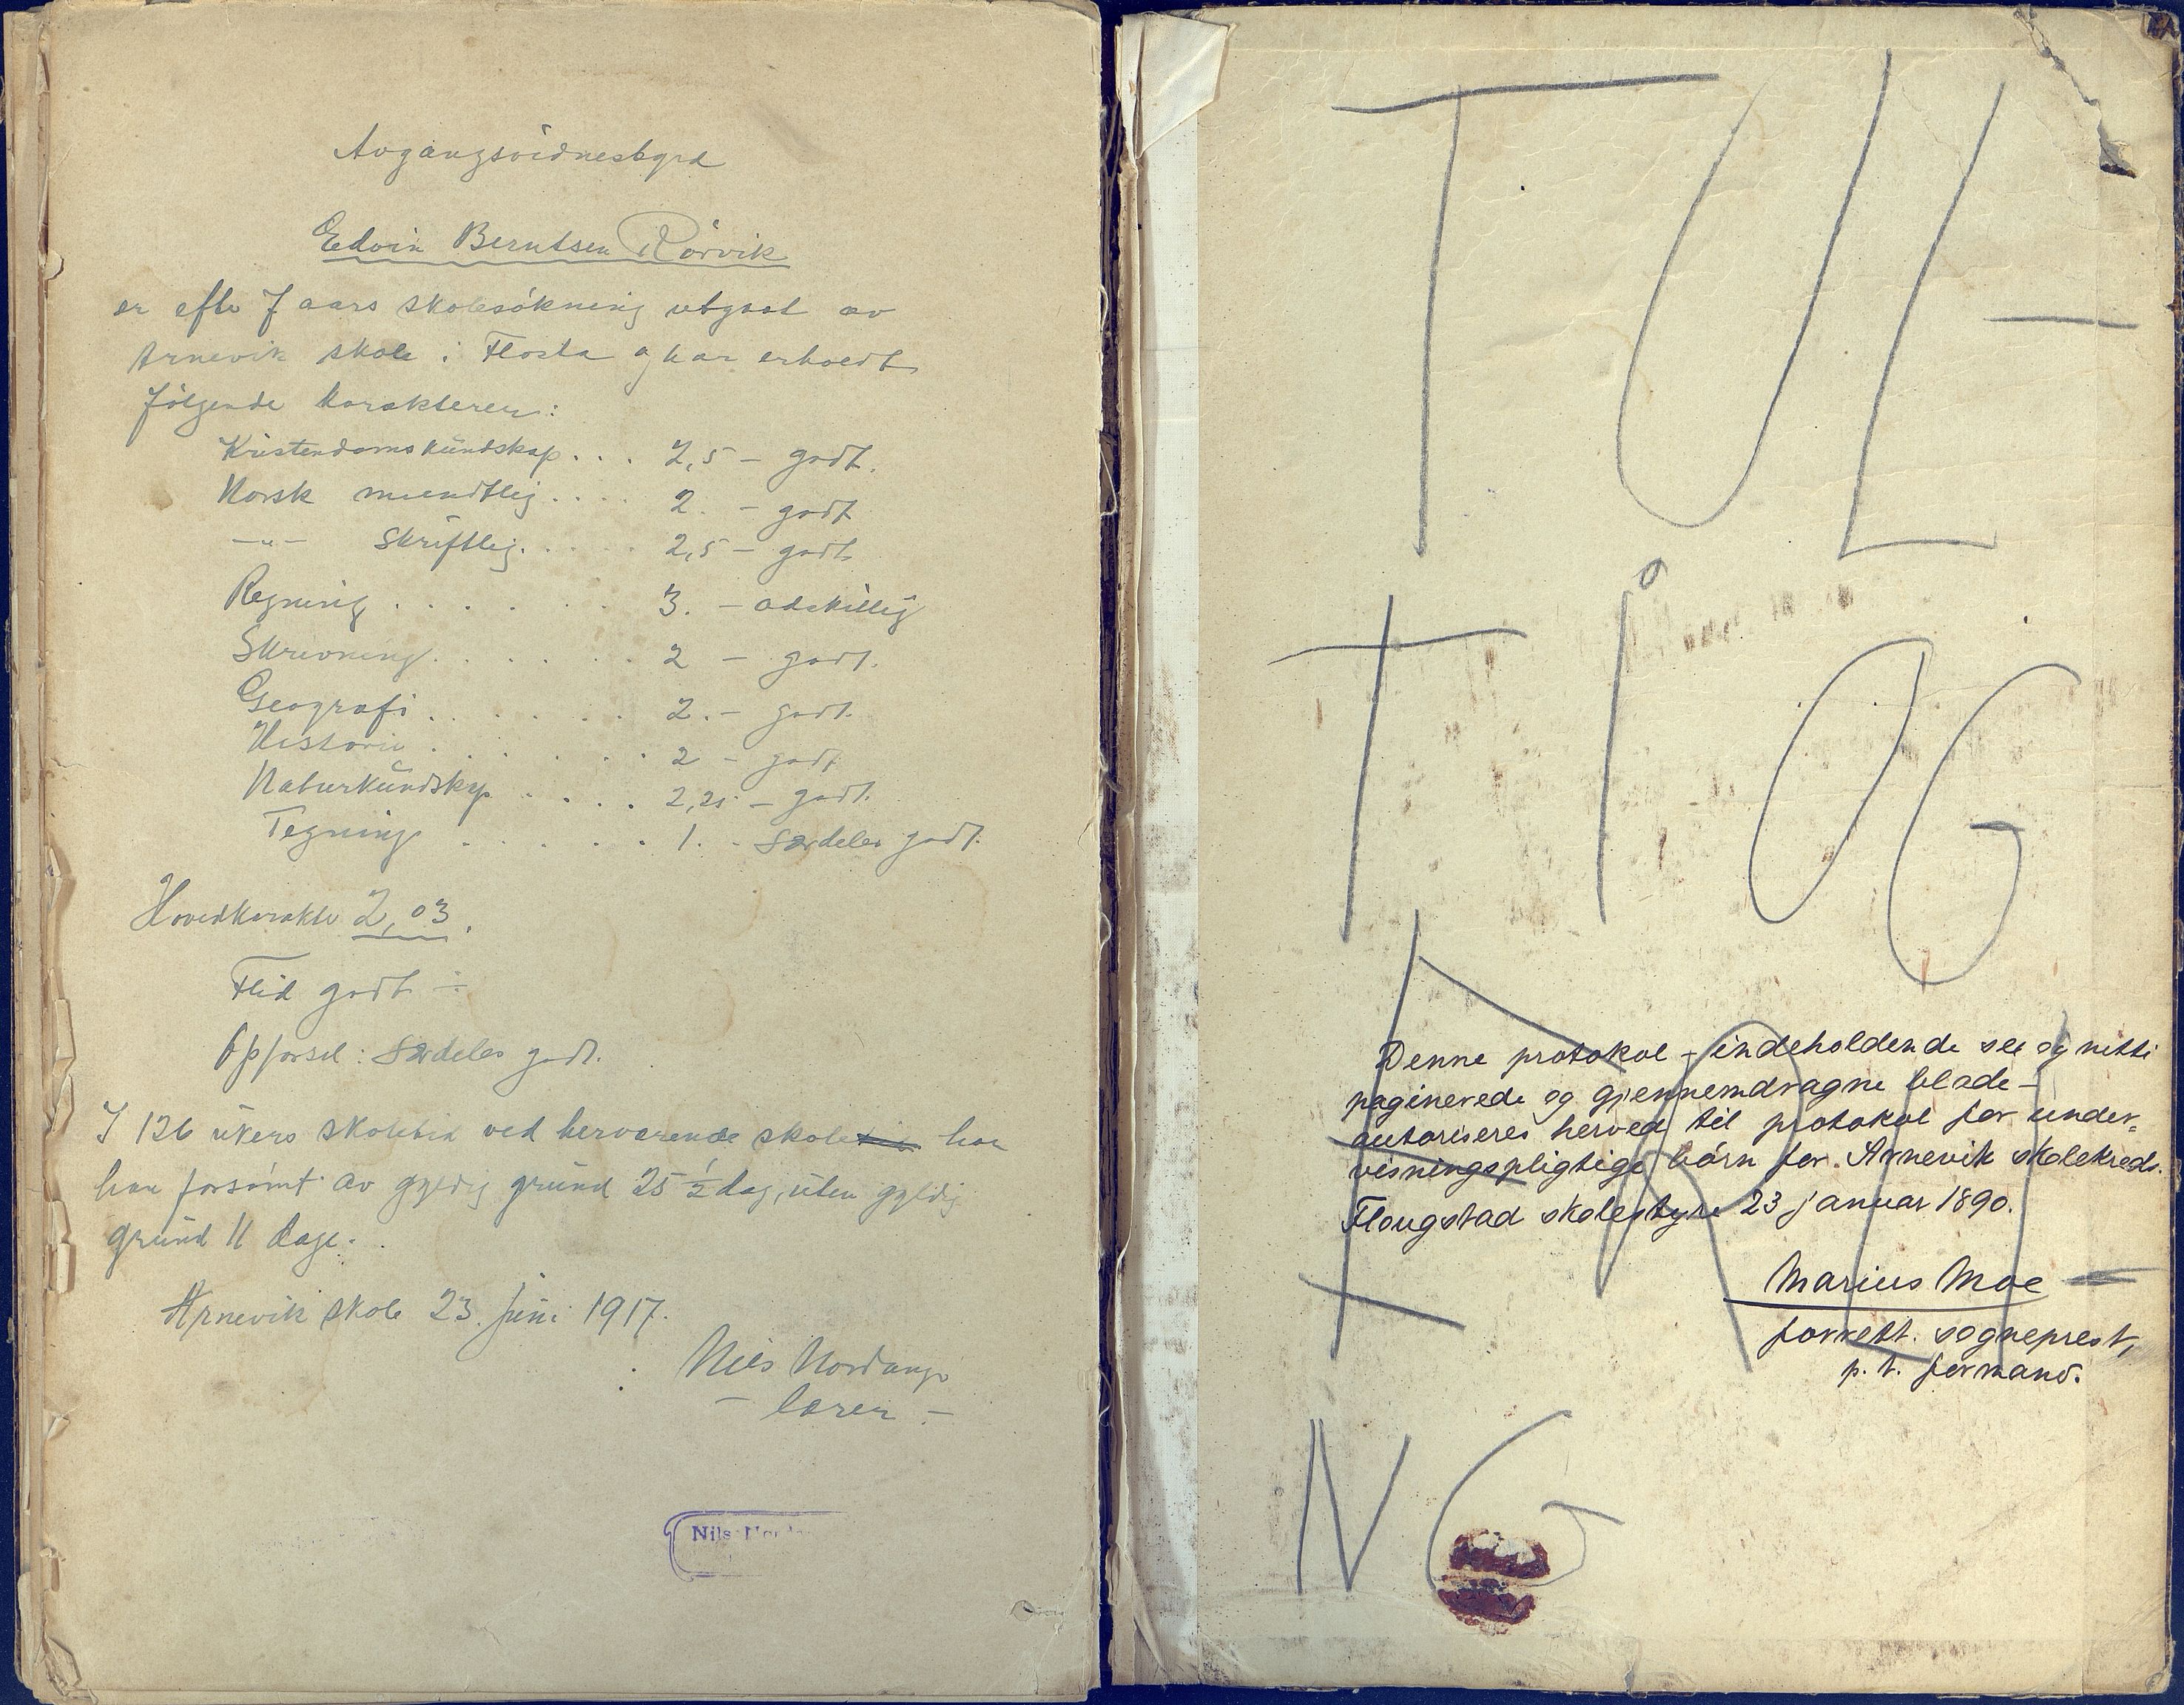 Avgangsvidnesbyrd
Edvin Berntsen Rörvik
er efter 7 aars skolesökning utgaat av
Arnevik skole i Flosta og har erholdt
følgende karakterer:
Kristendomskundskap . . . 2,5 – godt.
Norsk mundtlig . . . . 2. – godt
–"– Skriftlig . . . . . 2,5 – godt
Regning . . . . . . 3. – adskillig
Skrivning . . . . . . 2 – godt.
Geografi . . . . . . 2. – godt.
Historie . . . . . . 2 – godt
Naturkundskap . . . . 2,25 – godt.
Tegning . . . . . . 1. – særdeles godt.
Hovedkarakter 2,03.
Flid godt ÷
Opførsel: Særdeles godt.
I 126 ukers skoletid ved herværende skole har
han forsømt av gyldig grund 25 ½ dag, uten gyldig
grund 11 dage.
Arnevik skole 23. juni 1917.
Nils Nordange
– lærer –
Nils
TUL–
TIAG
Denne protokol – indeholdende og nitti
paginerede og gjennemdragne blade –
autoriseres herved til protokol for under=
visningspligtige børn for Arnevik skolekreds.
Flougstad skolestyre 23 januar 1890.
Marius Moe
p. t. formand.
NG